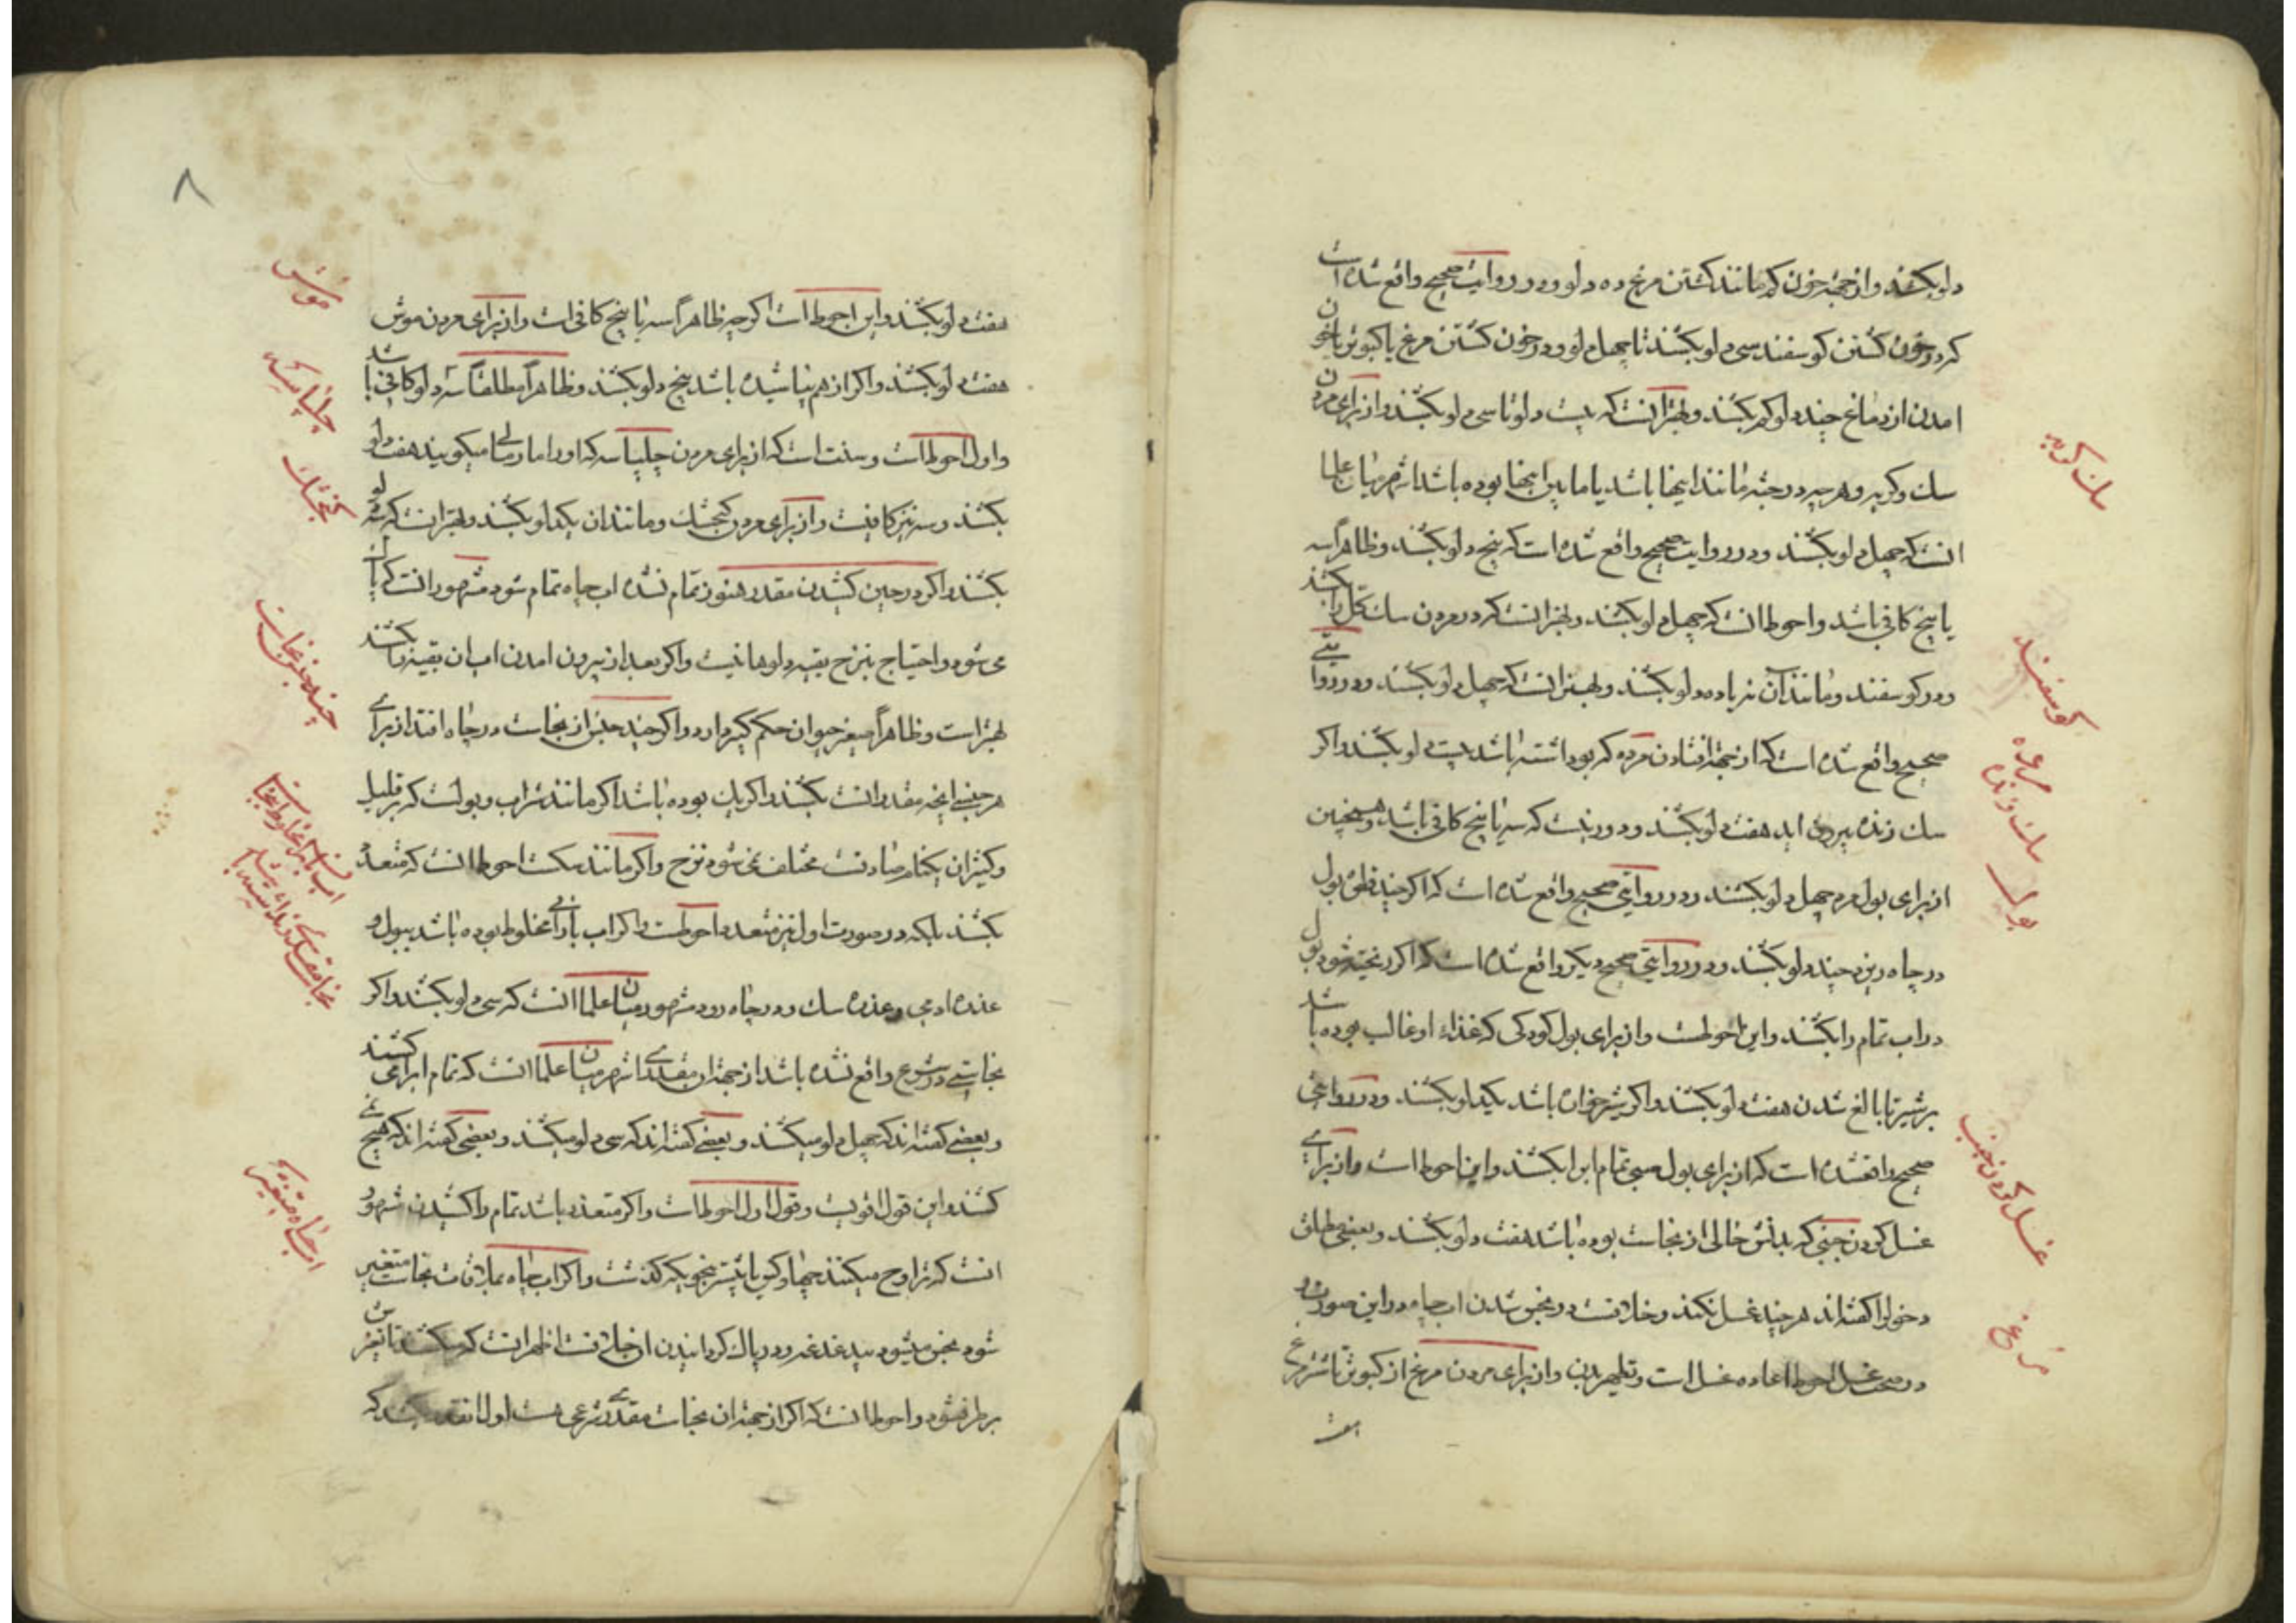 دلو بکشند و از جهة خون کم مانند کشتن مرغ ده دلو و در روایت صحیح واقع شده است
که در خون کشتن کوسفند سی دلو بکشند تا چهل دلو و در خون کشتن مرغ یا کبوتر یا خون
امدن از دماغ چند دلو کم بکشند و بهتر آنست که بیست دلو تا سی دلو بکشند و از برای مردن
سک و کربه و هر چه در جثه مانند اینها باشد یا مابین اینها بوده باشد اشهر میان علما
انست که چهل دلو بکشند و در روایت صحیح واقع شده است که پنج دلو بکشند و ظاهرا سه
یا پنج کافی باشد و احوط انست که چهل دلو بکشند و بهتر انست که در مردن سک کل را بکشند
و در کوسفند و مانند آن نه یا ده دلو بکشند و بهتر انست که چهل دلو بکشند و در روایتی
صحیح واقع شده است که از جهة افتادن مرده که بو داشته باشد بیست دلو بکشند و اکر
سک زنده بیرون اید هفت دلو بکشند و دور نیست که سه یا پنج کافی باشد و همچنین
از برای بول مرد چهل دلو بکشند و در روایتی صحیح واقع شده است که اکر چند قطره بول
در چاه ریزد چند دلو بکشند و در روایتی صحیح دیکر واقع شده است که اکر ریخته شود بول
در اب تمام را بکشند و این احوطست و از برای بول کودکی که غذاء او غالب بوده باشد
بر شیر تا بالغ شدن هفت دلو بکشند و اکر شیرخواره باشد یکدلو بکشند و در روایتی
صحیح واقعشده است که از برای بول صبی تمام اب را بکشند و این احوط است و از برای
غسل کردن جنبی که بدنش خالی از نجاست بوده باشد هفت دلو بکشند و بعضی مطلق
دخول را کفته اند هر چند غسل نکند و خلافست در نجس شدن اب چاه در این صورت و
در صحت غسل احوط اعاده غسل است و تطهیر بدن و از برای مردن مرغ از کبوتر تا شترمرغ
هفت
سک کربه
کوسفند
مرده
سک زنده
بول
غسل کردن جنب
مرغ
۸
هفت دلو بکشند و این احوط است اکر چه ظاهراً سه یا پنج کافی است و از برای مردن موش
هفت دلو بکشند و اکر از هم نپاشیده باشد پنج دلو بکشند و ظاهراً مطلقاً سه دلو کافی باشد
و اول احوط است و سنت است که از برای مردن چلپاسه که او را مارمولی میکویند هفت دلو
بکشند و سه نیز کافیست و از برای مردن کنجشک و مانند ان یکدلو بکشند و بهتر انست که سه دلو
بکشند و اکر در حین کشیدن مقدر هنوز تمام نشده اب چاه تمام شود مشهور انست که پاک
می شود و احتیاج بنزح بقیه دلوها نیست و اکر بعد از بیرون امدن اب ان بقیه را بکشند
بهتر است و ظاهراً صغیر حیوان حکم کبیر دارد و اکر چند جنس از نجاست در چاه افتد از برای
هر جنسی انچه مقدر انست بکشند و اکر یک بوده باشد اکر مانند شراب و بولست که بر قلیل
و کثیر ان یکنام صادقست مختلف نمی شود نزح و اکر مانند سکست احوط انست که متعدد
بکشند بلکه در صورت اول نیز متعدد احوطست و اکر اب بارانی مخلوط بوده باشد ببول و
عذره ادمی و عذره سک و در چاه رود مشهور میان علما انست که سی دلو بکشند و اکر
نجاستی در شرع واقع نشده باشد از جهة ان مقدری اشهر میان علما انست که تمام اب را می کشند
و بعضی کفته اند که چهل دلو میکشند و بعضی کفته اند که سی دلو میکشند و بعضی کفته اند که هیچ نمی
کشند و این قول اقویست و قول اول احوط است و اکر متعذر باشد تمام را کشیدن مشهور
انست که تراوح میکنند چهار کس بنحویکه کذشت و اکر اب چاه بملاقات نجاست متغیر
شود نجس میشود بیدغدغه و در پاک کردانیدن ان خلافست اظهر انست که میکشند تا تغیرش
برطرف شود و احوط انست که اکر از جهة ان نجاست مقدری شرعی هست اولا انقدر بکشند که
موش
چلپاسه
کنجشک
چند جنس نجاست
اب چاه متغیر